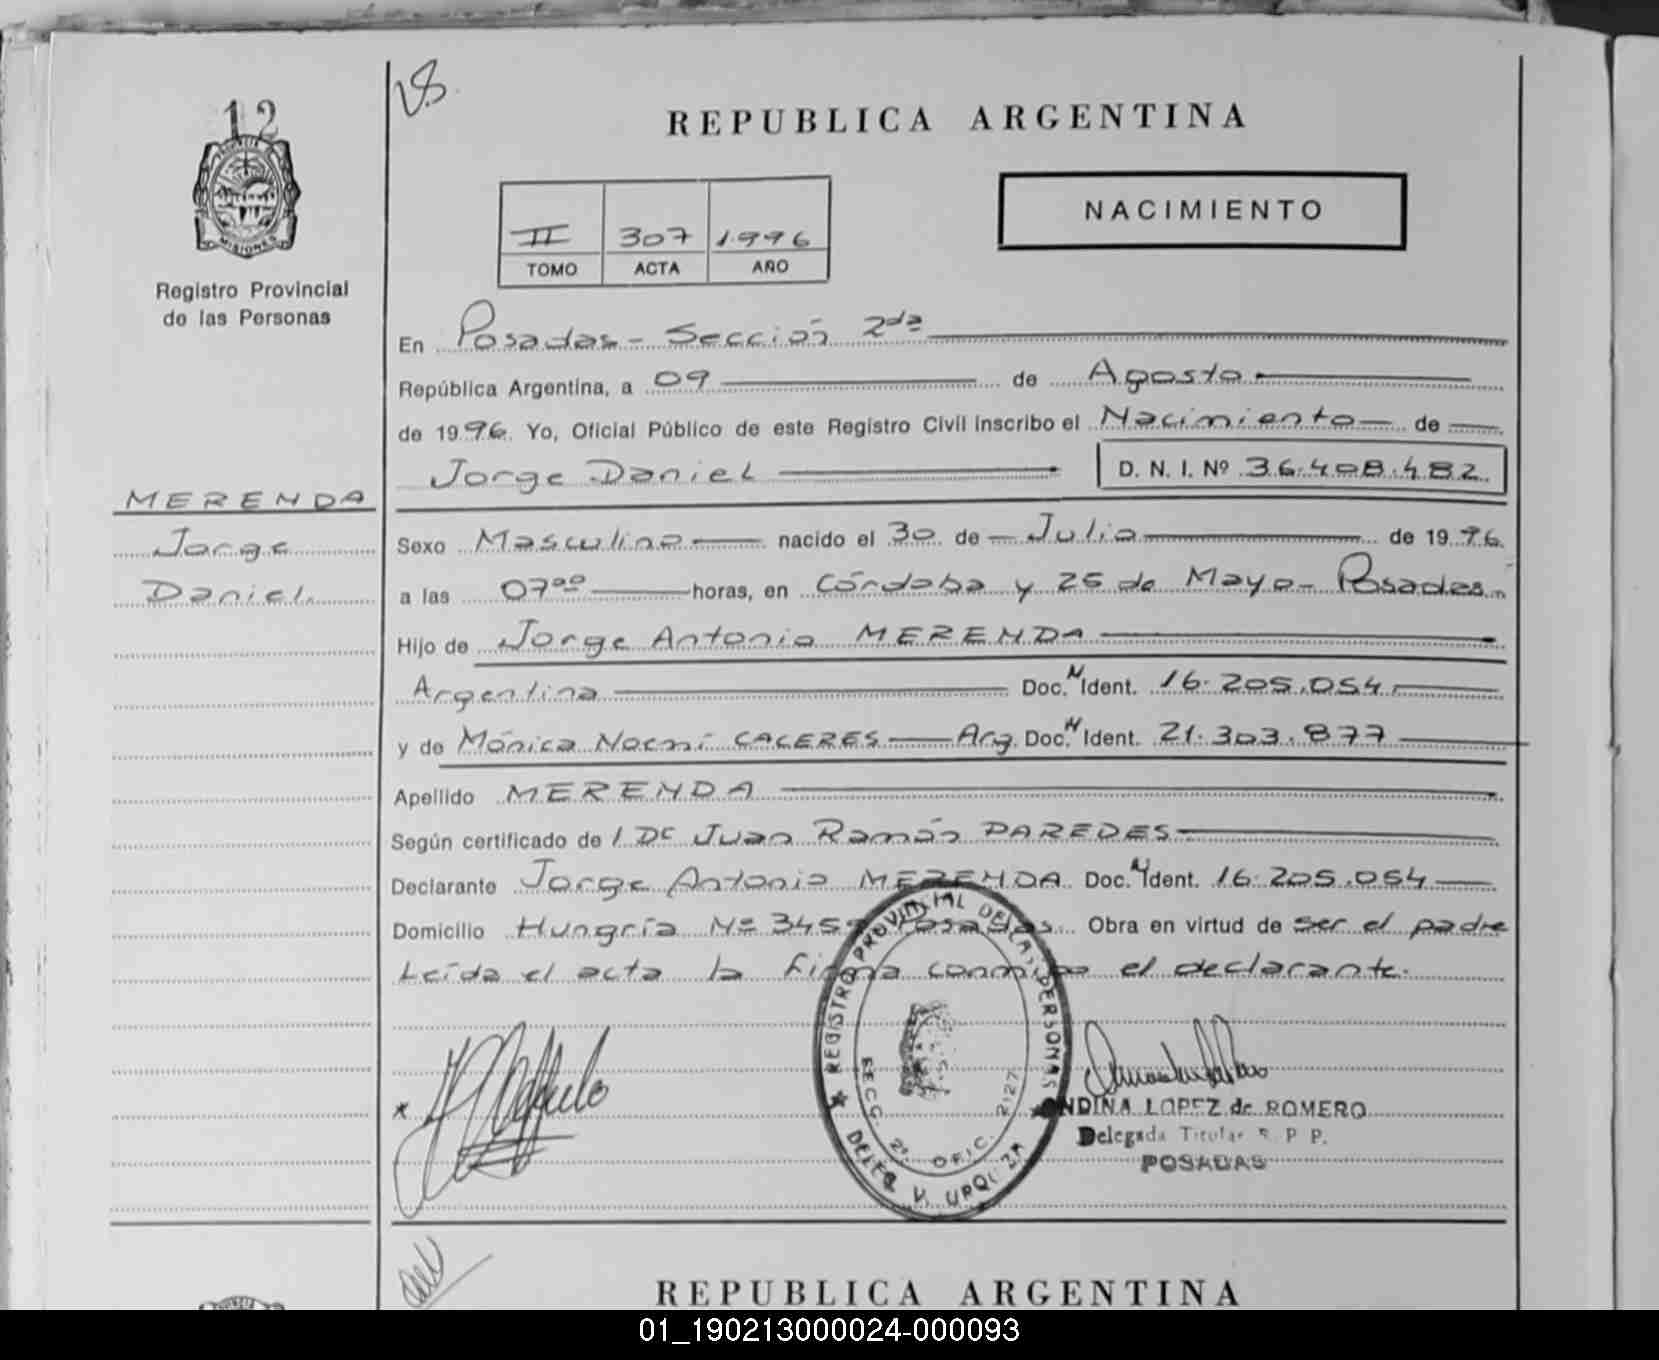 12
MISIONES
Registro Provincial
de las Personas
MERENDA
Jorge
Daniel.
REPUBLICA ARGENTINA
NACIMIENTO
II 307 1.996
TOMO ACTA AÑO
En Posadas - Sección 2da
República Argentina, a 09 de Agosto
de 1996. Yo, Oficial Público de este Registro Civil inscribo el Nacimiento de
Jorge Daniel D. N. I. Nº 36.408.482.
Sexo Masculino nacido el 30 de Julio de 1996.
a las 07ºº horas, en Córdoba y 25 de Mayo - Posadas.
Hijo de Jorge Antonio MERENDA
Argentina Doc. N Ident. 16.205.054
y de Mónica Noemí CACERES Arg. Doc. N Ident. 21.303.877
Apellido MERENDA
Según certificado de l Dr Juan Ramón PAREDES
Declarante Jorge Antonio MERENDA Doc. N Ident. 16.205.054
Domicilio Hungría Nº 345 Posadas. Obra en virtud de ser el padre
Leída el acta la firma conmigo el declarante.
REGISTRO PROVINCIAL DE LAS PERSONAS
SECC. 2º. OFIC. 2127
DELEG. V. URQUIZA
ONDINA LOPEZ de ROMERO
Delegada Titular R. P. P.
POSADAS
REPUBLICA ARGENTINA
01_190213000024-000093